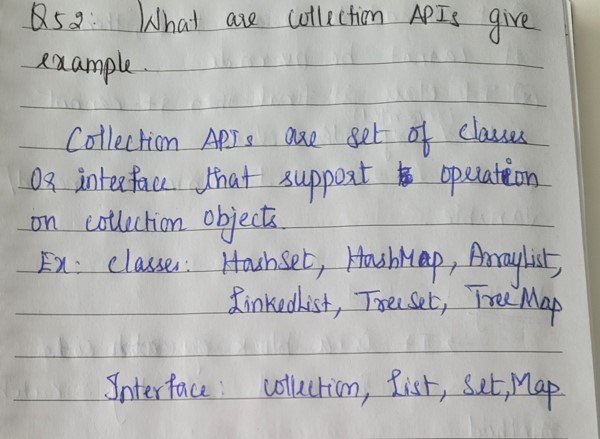 Q52: What are collection APIs give
example.
Collection APIs are set of classes
Or interface that support operation
on collection objects.
Ex: classes: HashSet, HashMap, ArrayList,
LinkedList, TreeSet, TreeMap
Interface: collection, List, Set, Map